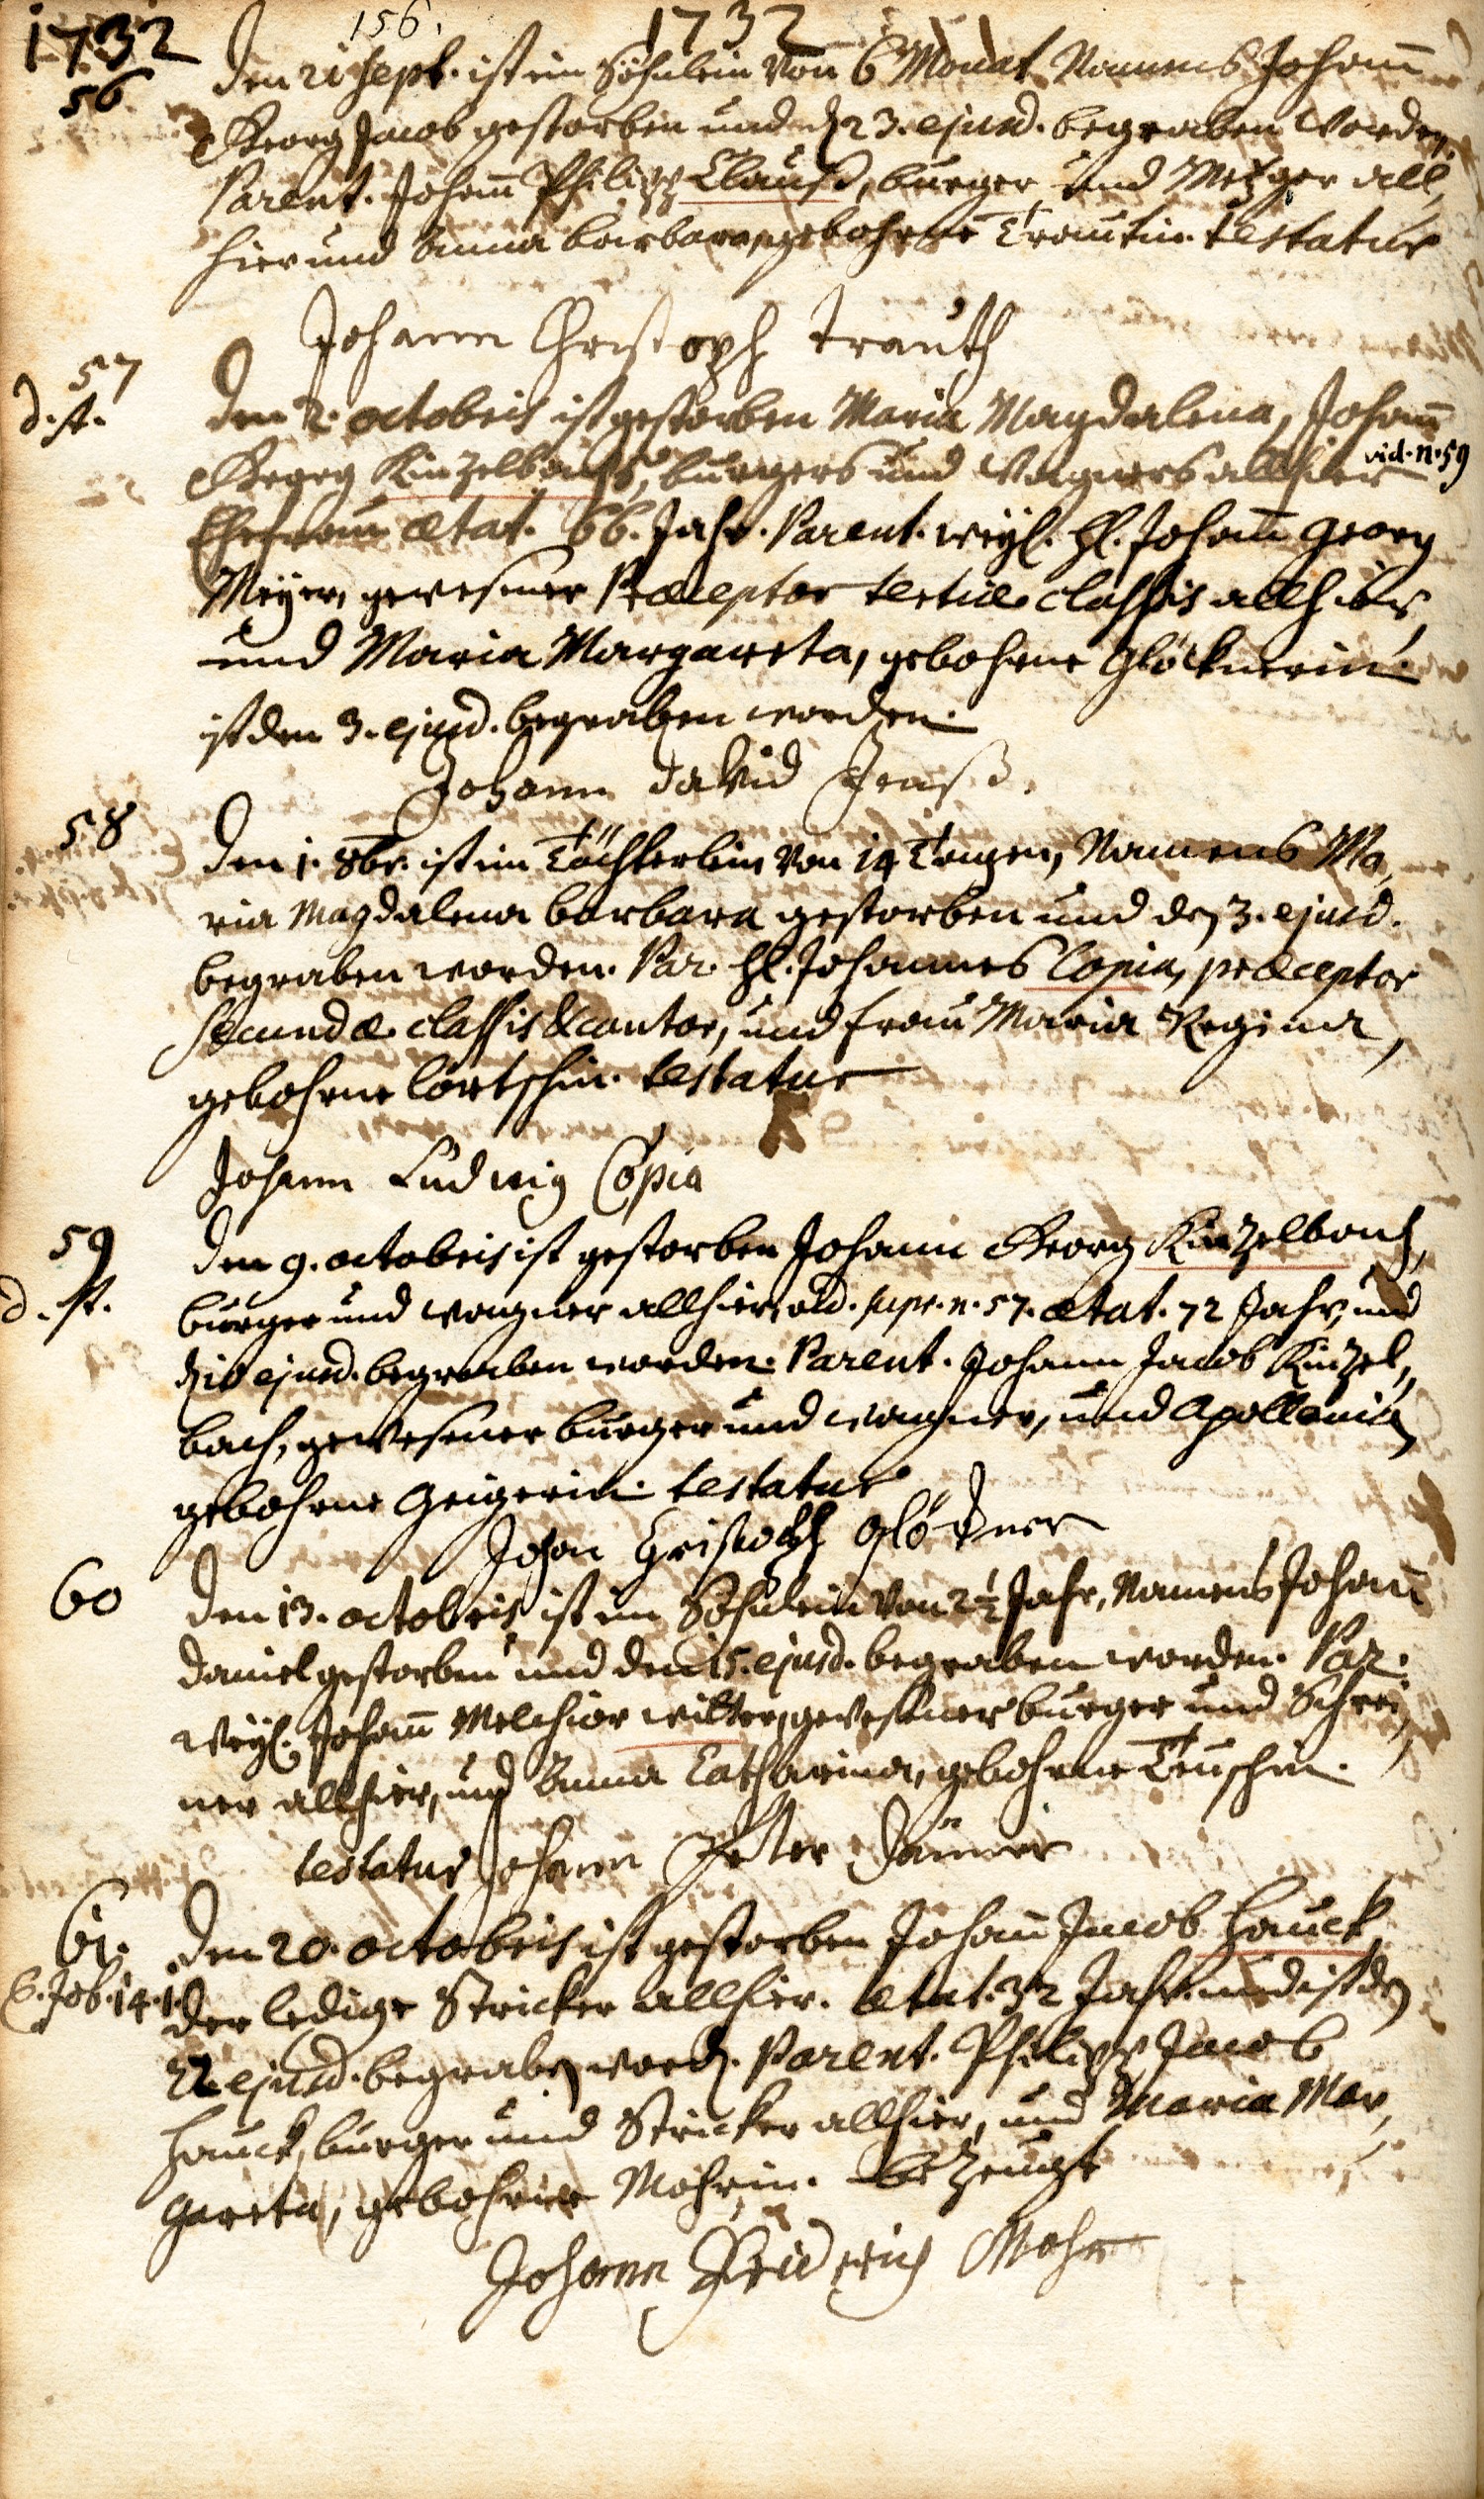 1732 156. 1732
56 Den 21 Sept. ist ein Söhnlein von 6 Monat Namens Johañ
Georg Jacob gestorben und d. 23. ejusd. begraben worden,
Parent. Johañ Philipp Clauß, burger und Metzger all,
hier und Anna barbara, gebohrne Trautin. testatur
Johann Christoph Trauth
57
d. st. Den 2. octobris ist gestorben Maria Magdalena, Johañ
Georg Kinzelbachs, burgers und Wagners allhier vid. n. 59
Ehefrau ætat. 66. Jahr. Parent. weyl. H. Johañ Georg
Meyer, gewesener Præceptor tertiæ classis allhier,
und Maria Margareta, gebohrne Glöcknerin.
ist den 3. ejusd. begraben worden.
Johann david
58 Den 1. 8br. ist ein Töchterlein von 14 Tagen, Namens Ma,
ria Magdalena barbara gestorben und den 3. ejusd.
begraben worden. Par. H. Johannes Copia, præceptor
secundæ classis & cantor, und frau Maria Regina,
gebohrne testatur
Johann Ludwig Copia
59 Den 9. octobris ist gestorben Johann Georg Kinzelbach,
d. st. burger und wagner allhier, vid. supr. n. 57. ætat. 72 Jahr, und
d. 10 ejusd. begraben worden. Parent. Johann Jacob Kinzel,,
bach, gewesener burger und wagner, und Apollonia
gebohrne Geigerin. testatur
Johan Christoph Glöckner
60 Den 13. octobris ist ein Söhnlein von 2½ Jahr, Namens Johañ
Daniel gestorben und den 15. ejusd. begraben worden. Par.
Weyl. Johañ Melchior wilter, gewesener burger und Schrei,,
ner allhier, und Anna Catharina, gebohrne Teuschin.
testatur Johann Peter
61. Den 20. octobris ist gestorben Johañ Jacob Hauck
C. Job. 14. 1. der ledige Stricker allhier. ætat. 32 Jahr und ist den
22 ejusd. begraben word. Parent. Philipp Jacob
Hauck, burger und Stricker allhier, und Maria Mar,,
gareta, gebohrne Mohrin. bezeugt
Johann Fridrich Mohr